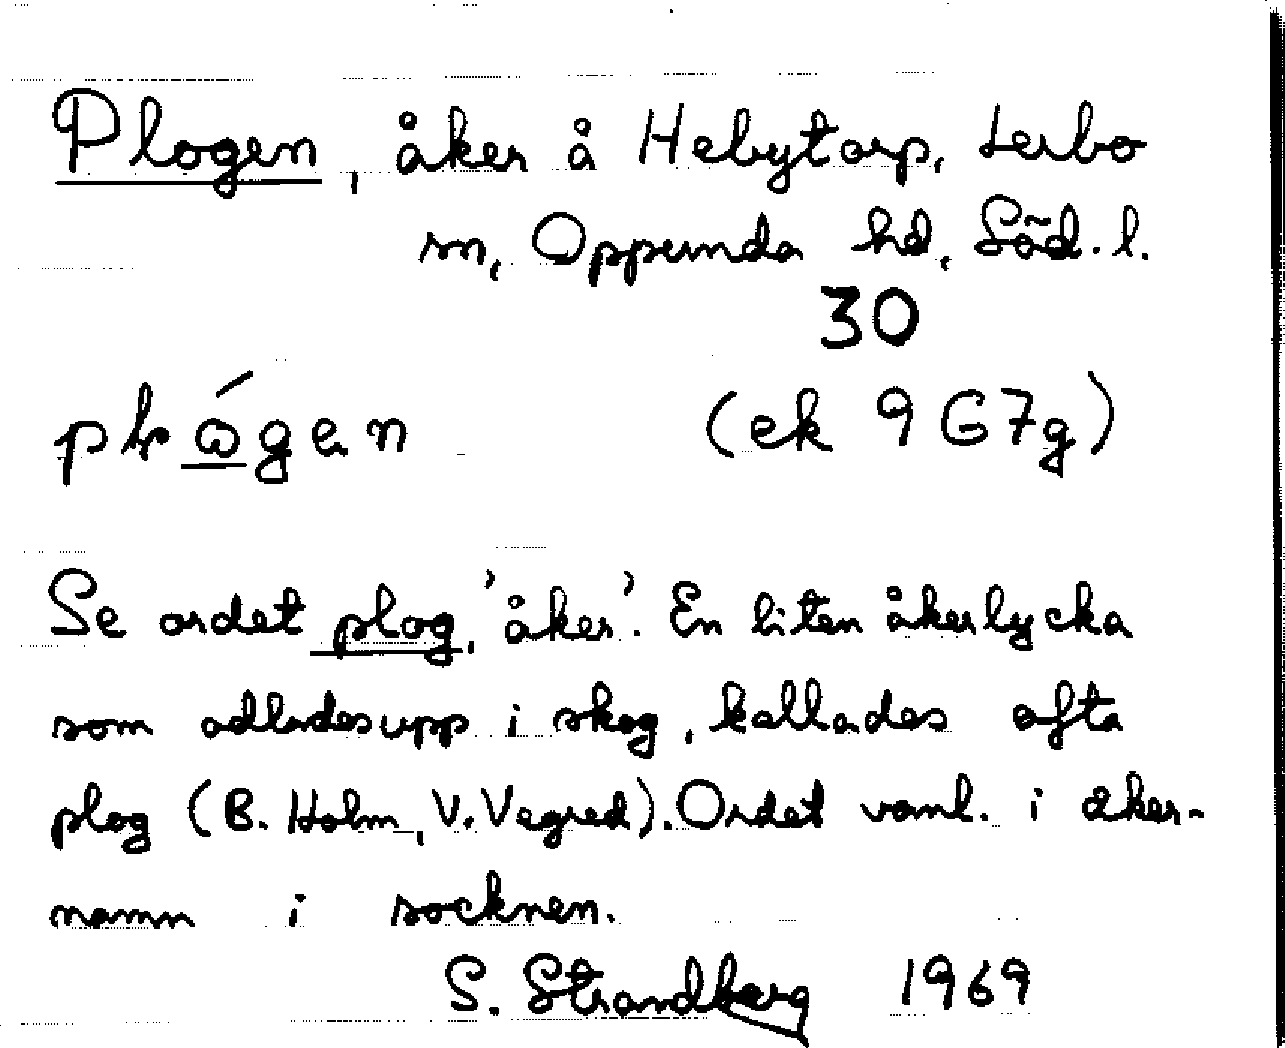 Plogen, åker å Hebytorp, Lerbo
sn, Oppunda hd, Söd. l.
30
(ek 9 G7g)
Se ordet plog, 'åker'. En liten åkerlycka
som odlades upp i skog, kallades ofta
plog (B. Holm, V. Vagred). Ordet vanl. i åker-
namn i socknen.
S. Strandberg 1969